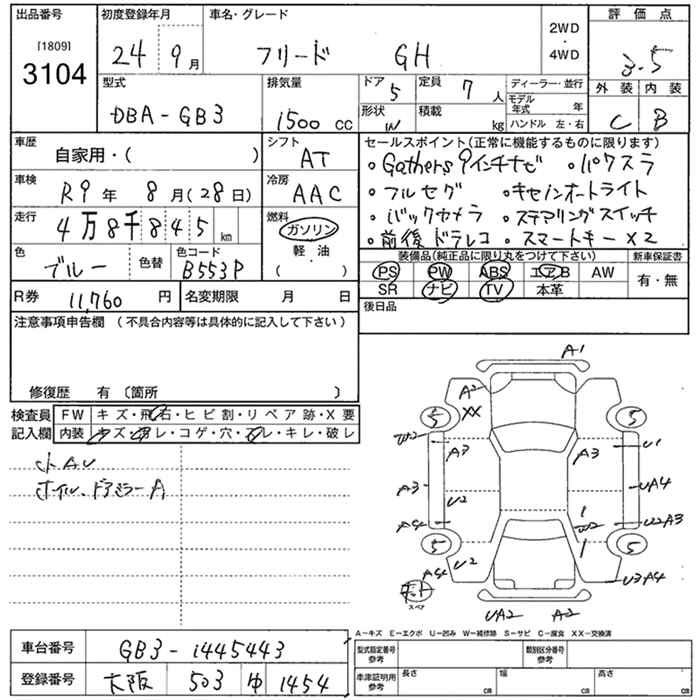 出品番号 初度登録年月 車名・グレード 評価点
[1809] 3104 24年9月 フリード GH 2WD・4WD 3.5
外装 内装
型式 排気量 ドア 5 定員 7人 ディーラー・並行
DBA-GB3 1500cc 形状 W 積載 kg モデル年式 年 C B
ハンドル 左・右
車歴 シフト セールスポイント(正常に機能するものに限ります)
自家用・( ) AT ・Gathers 9インチナビ ・パワスラ
車検 冷房 ・フルセグ ・キセノンオートライト
R9年 8月(28日) AAC ・バックカメラ ・ステアリングスイッチ
走行 燃料 ・前後ドラレコ ・スマートキー×2
4万8千845km ガソリン
軽油
( )
色 ブルー 色替 色コード B553P
装備品(純正品に限り丸をつけて下さい) 新車保証書
PS PW ABS エアB AW 有・無
SR ナビ TV 本革
R券 11,760円 名変期限 月 日 後日品
注意事項申告欄 (不具合内容等は具体的に記入して下さい)
修復歴 有 〔箇所 〕
検査員 FW キズ・飛石・ヒビ割・リペア跡・X要
記入欄 内装 キズ・汚レ・コゲ・穴・スレ・キレ・破レ
小AU
ホイル、ドアミラーA
A1
A2 XX
5 5
W2 A3 A3 U1
A3 U2 UA4
A4 W2 U2A3
5 5
A4 U2 U3A4
スペア
UA2 A2
A-キズ E-エクボ U-凹み W-補修跡 S-サビ C-腐食 XX-交換済
車台番号 GB3-1445443
登録番号 大阪 503 ゆ 1454
型式指定番号 参考 類別区分番号 参考
車庫証明用 参考 長さ cm 幅 cm 高さ cm